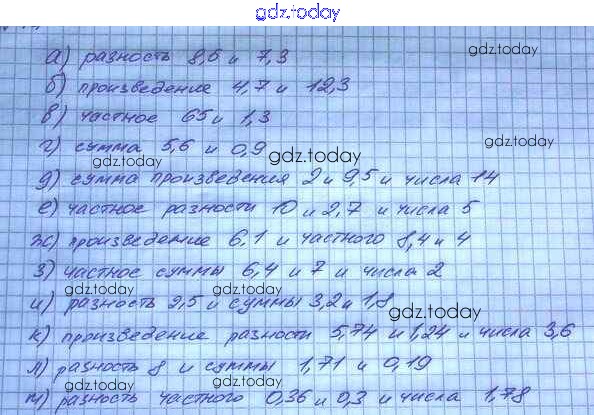 gdz.today
gdz.today
а) разность 8,6 и 7,3
б) произведение 4,7 и 12,3
в) частное 65 и 1,3
gdz.today
г) сумма 5,6 и 0,9
gdz.today
gdz.today
д) сумма произведения 2 и 9,5 и числа 14
е) частное разности 10 и 2,7 и числа 5
ж) произведение 6,1 и частного 8,4 и 4
з) частное суммы 6,4 и 7 и числа 2
gdz.today
gdz.today
и) разность 9,5 и суммы 3,2 и 1,8
gdz.today
к) произведение разности 5,74 и 1,24 и числа 3,6
л) разность 8 и суммы 1,71 и 0,19
gdz.today
gdz.today
м) разность частного 0,36 и 0,3 и числа 1,78